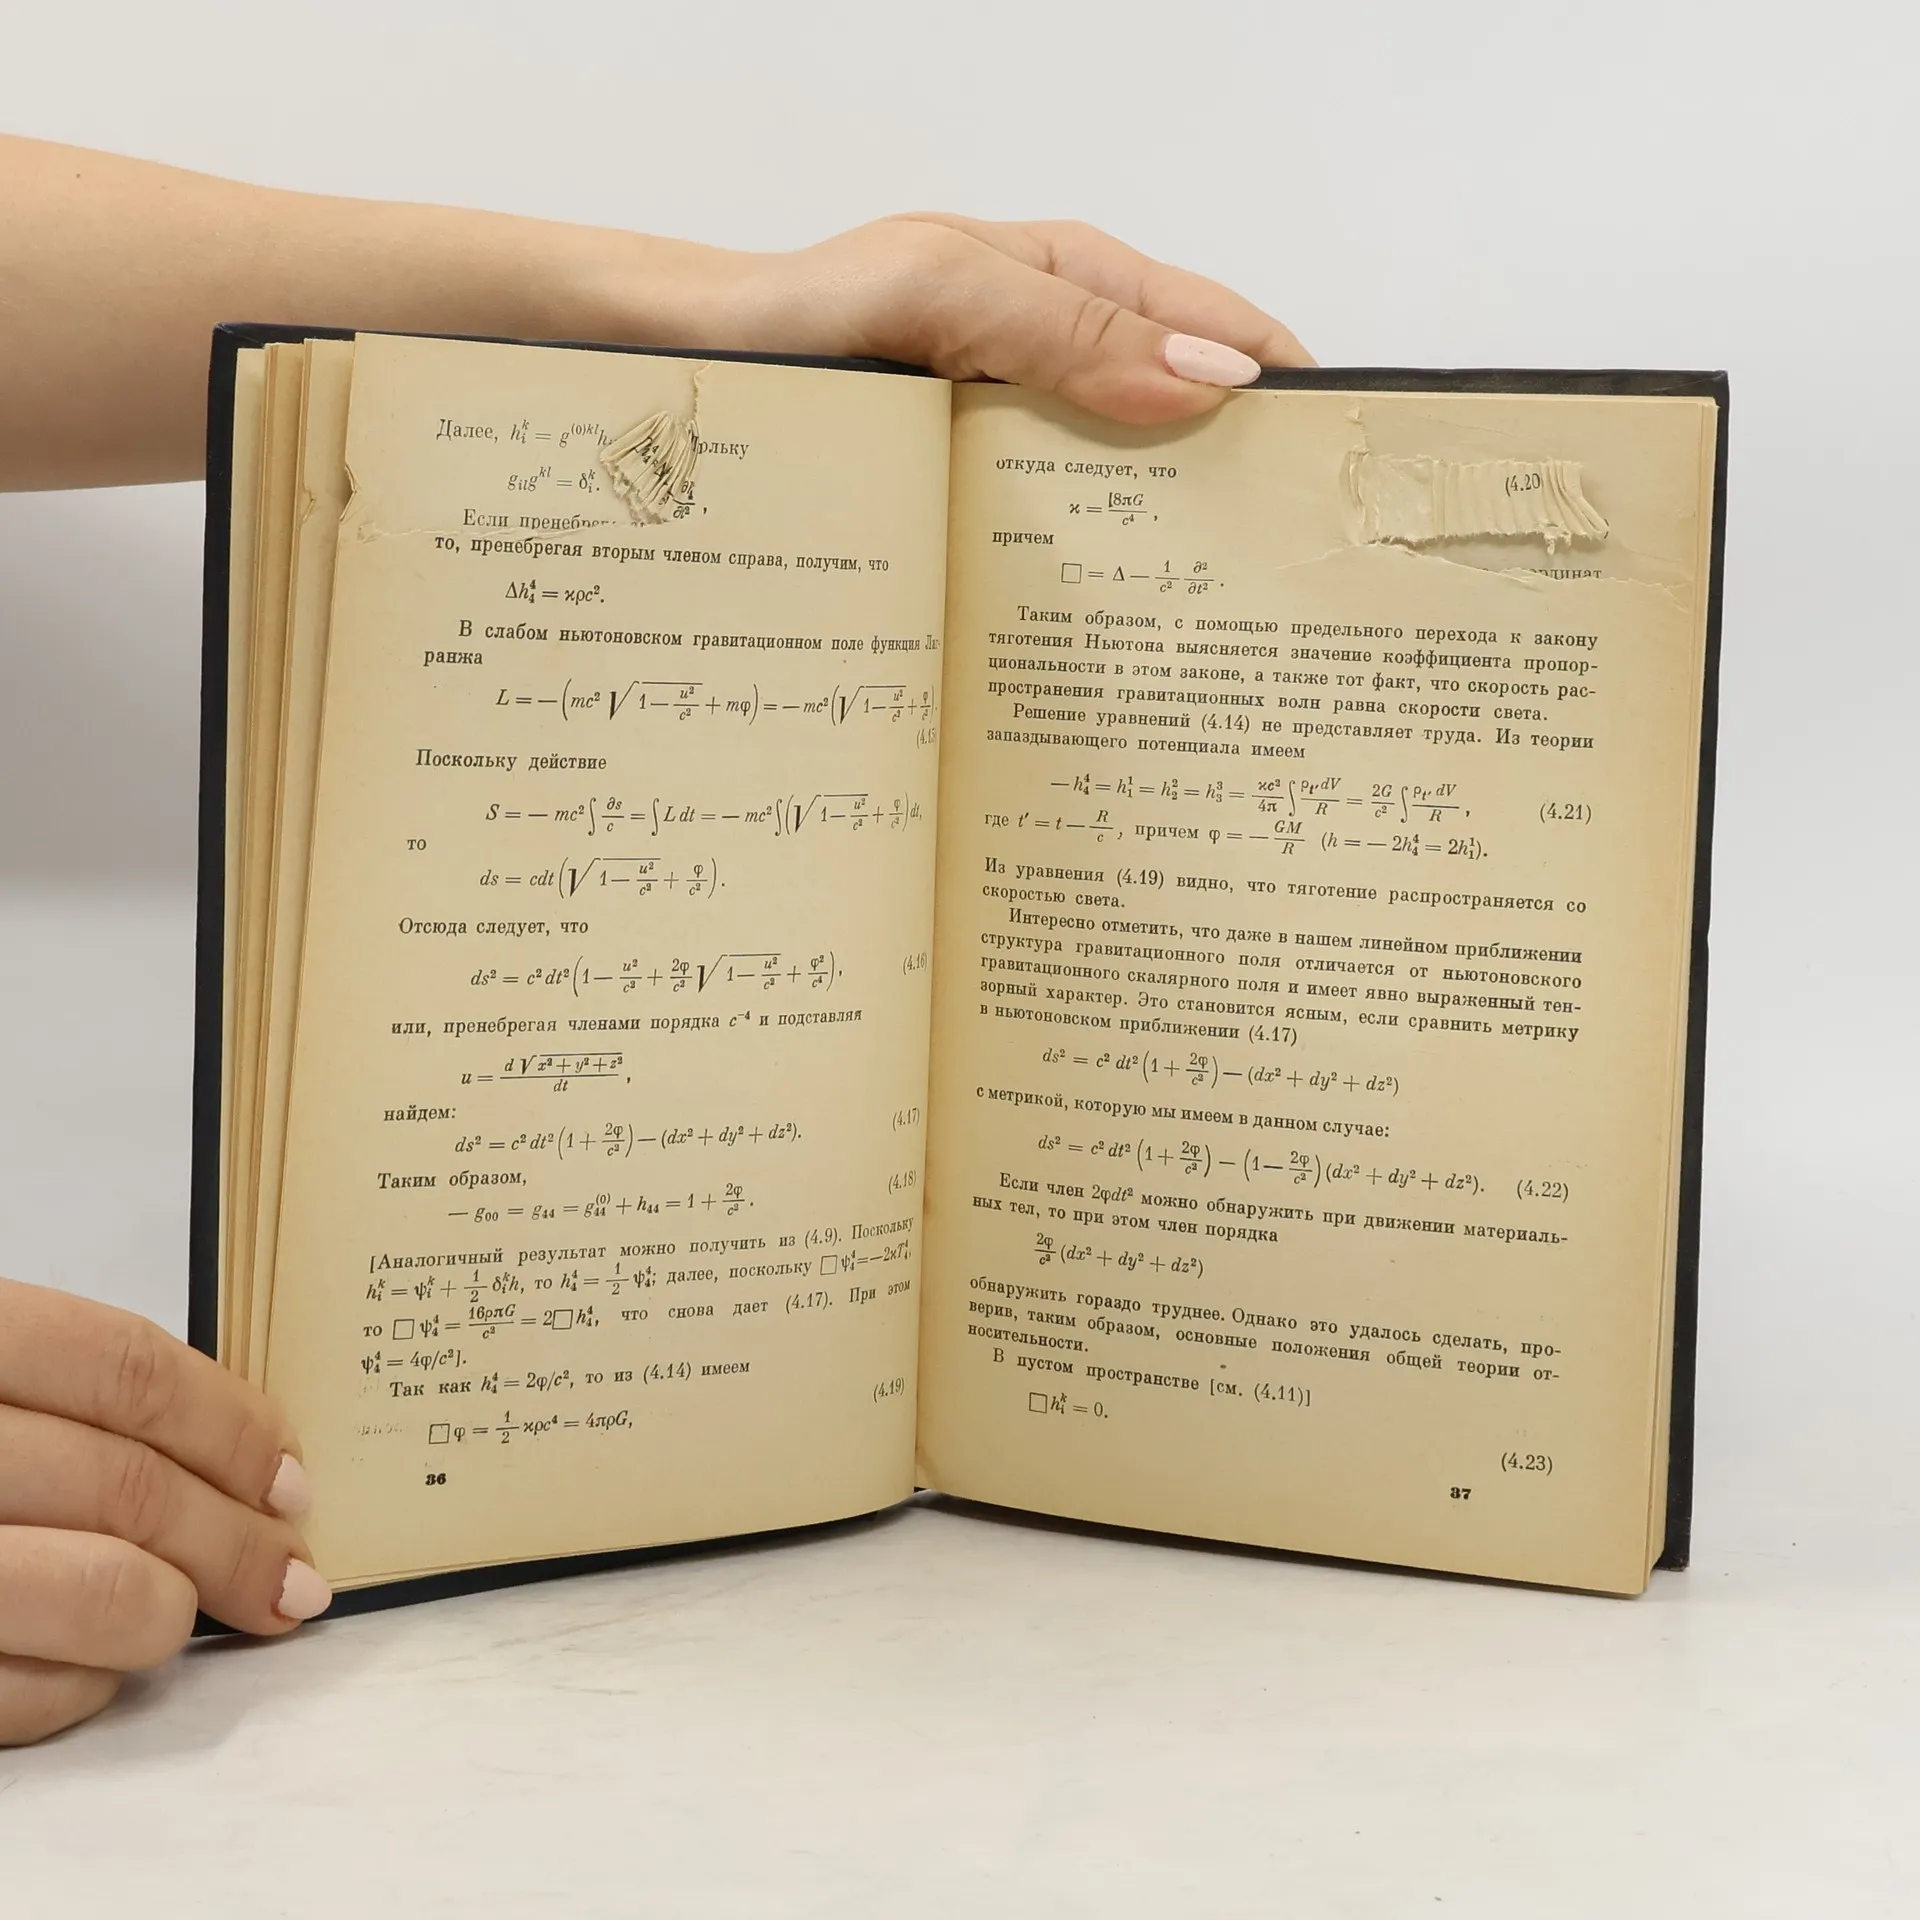 Далее, hᵢᵏ = g⁽⁰⁾ᵏˡh
gᵢₗgᵏˡ = δᵢᵏ.
Если
то, пренебрегая вторым членом справа, получим, что
Δh₄⁴ = ϰρc².
В слабом ньютоновском гравитационном поле функция Лаг-
ранжа
L = — (mc² √(1 — u²/c²) + mφ) = — mc² (√(1 — u²/c²) + φ/c²).
(4.15)
Поскольку действие
S = — mc² ∫ ∂s/c = ∫ L dt = — mc² ∫ (√(1 — u²/c²) + φ/c²) dt,
то
ds = cdt (√(1 — u²/c²) + φ/c²).
Отсюда следует, что
ds² = c² dt² (1 — u²/c² + 2φ/c² √(1 — u²/c²) + φ²/c⁴), (4.16)
или, пренебрегая членами порядка c⁻⁴ и подставляя
u = d √(x² + y² + z²)/dt,
найдем:
ds² = c² dt² (1 + 2φ/c²) — (dx² + dy² + dz²). (4.17)
Таким образом,
— g₀₀ = g₄₄ = g₄₄⁽⁰⁾ + h₄₄ = 1 + 2φ/c². (4.18)
[Аналогичный результат можно получить из (4.9). Поскольку
hᵢᵏ = ψᵢᵏ + 1/2 δᵢᵏh, то h₄⁴ = 1/2 ψ₄⁴; далее, поскольку □ψ₄⁴ = —2ϰT₄⁴,
то □ψ₄⁴ = 16ρπG/c² = 2□h₄⁴, что снова дает (4.17). При этом
ψ₄⁴ = 4φ/c²].
Так как h₄⁴ = 2φ/c², то из (4.14) имеем
□φ = 1/2 ϰρc⁴ = 4πρG, (4.19)
36
откуда следует, что
ϰ = 8πG/c⁴, (4.20
причем
□ = Δ — 1/c² ∂²/∂t².
Таким образом, с помощью предельного перехода к закону
тяготения Ньютона выясняется значение коэффициента пропор-
циональности в этом законе, а также тот факт, что скорость рас-
пространения гравитационных волн равна скорости света.
Решение уравнений (4.14) не представляет труда. Из теории
запаздывающего потенциала имеем
— h₄⁴ = h₁¹ = h₂² = h₃³ = ϰc²/4π ∫ ρₜ′ dV/R = 2G/c² ∫ ρₜ′ dV/R, (4.21)
где t′ = t — R/c, причем φ = — GM/R (h = — 2h₄⁴ = 2h₁¹).
Из уравнения (4.19) видно, что тяготение распространяется со
скоростью света.
Интересно отметить, что даже в нашем линейном приближении
структура гравитационного поля отличается от ньютоновского
гравитационного скалярного поля и имеет явно выраженный тен-
зорный характер. Это становится ясным, если сравнить метрику
в ньютоновском приближении (4.17)
ds² = c² dt² (1 + 2φ/c²) — (dx² + dy² + dz²)
с метрикой, которую мы имеем в данном случае:
ds² = c² dt² (1 + 2φ/c²) — (1 — 2φ/c²) (dx² + dy² + dz²). (4.22)
Если член 2φdt² можно обнаружить при движении материаль-
ных тел, то при этом член порядка
2φ/c² (dx² + dy² + dz²)
обнаружить гораздо труднее. Однако это удалось сделать, про-
верив, таким образом, основные положения общей теории от-
носительности.
В пустом пространстве [см. (4.11)]
□hᵢᵏ = 0.
(4.23)
37